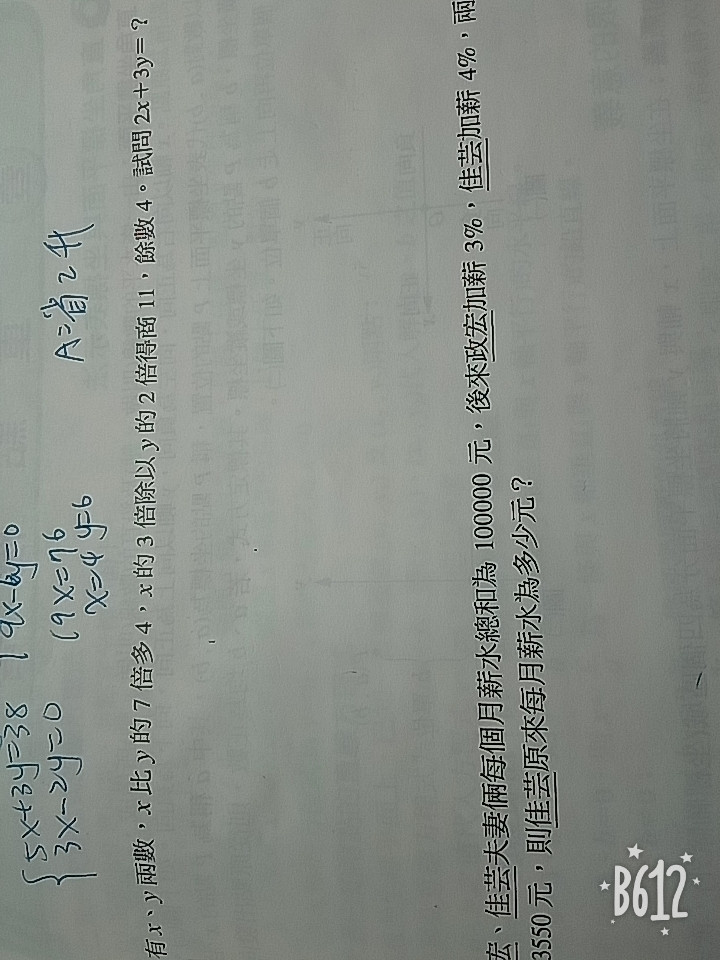 {5x+3y=38
3x-2y=0
9x-6y=0
19x=76
x=4 y=6
有x、y兩數，x比y的7倍多4，x的3倍除以y的2倍得商11，餘數4。試問2x+3y=？
宏、佳芸夫妻倆每個月薪水總和為 100000 元，後來政宏加薪 3%，佳芸加薪 4%，兩
3550 元，則佳芸原來每月薪水為多少元？
B612